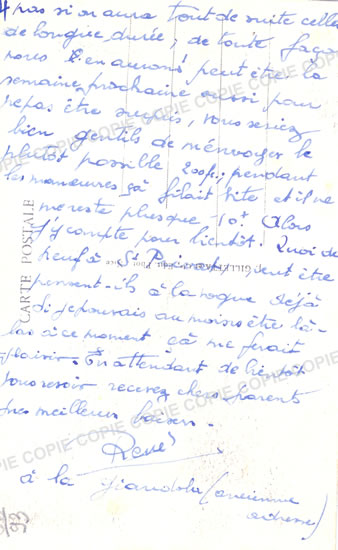 pas si on aura tout de suite celle
de longue durée, de toute façon
nous en aurons peut être la
semaine prochaine aussi pour
pas être surpris, vous seriez
bien gentils de m'envoyer le
plutôt possible 200f; pendant
les manœuvres ça filait vite et il ne
me reste plus que 10f. Alors
j'y compte pour bientôt. Quoi de
neuf à St peut être
pensent-ils à la vogue déjà
si je pouvais au moins être là-
bas à ce moment çà me ferait
plaisir. En attendant de bientôt
vous revoir recevez chers parents
mes meilleurs baisers.
René
à la Giandola (ancienne
adresse)
CARTE POSTALE
COPIE COPIE COPIE COPIE COPIE
99